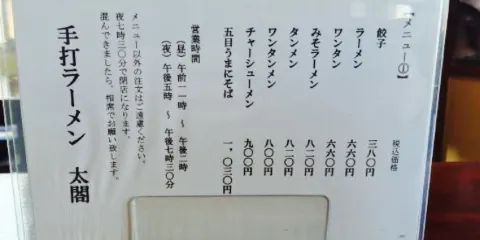 【メニュー①】
税込価格
餃子 三八〇円
ラーメン 六六〇円
ワンタン 六六〇円
みそラーメン 八二〇円
タンメン 八二〇円
ワンタンメン 八〇〇円
チャーシューメン 九〇〇円
五目うまにそば 一、〇三〇円
営業時間
(昼)午前一一時 ～ 午後二時
(夜)午後五時 ～ 午後七時三〇分
メニュー以外の注文はご遠慮ください。
夜七時三〇分で閉店になります。
混んできましたら、相席でお願い致します。
手打ラーメン 太閤